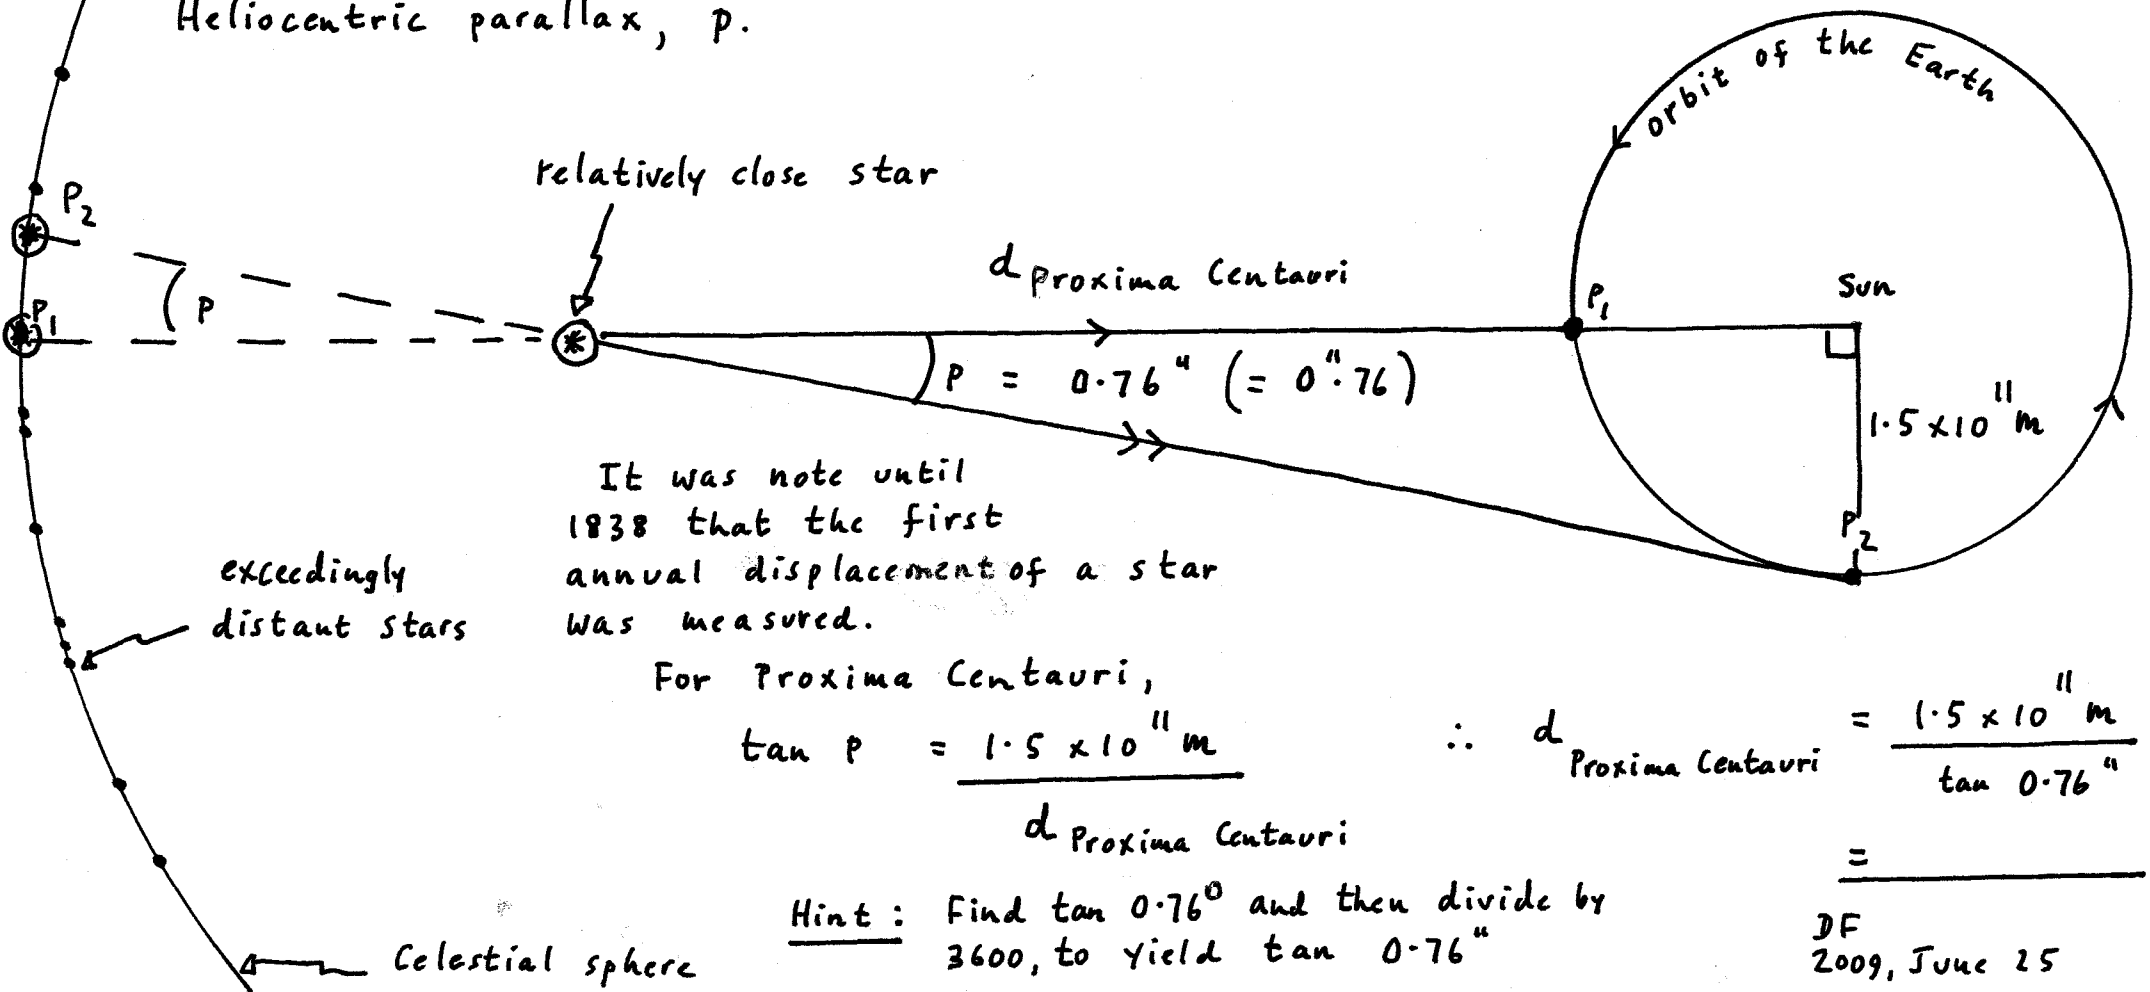 Heliocentric parallax, p.
orbit of the Earth
relatively close star
P2
P1
p
d Proxima Centauri
P1
Sun
p = 0.76" (= 0".76)
1.5 x 10^11 m
P2
It was note until
1838 that the first
annual displacement of a star
was measured.
exceedingly
distant stars
For Proxima Centauri,
tan p = 1.5 x 10^11 m
d Proxima Centauri
∴ d Proxima Centauri = 1.5 x 10^11 m
tan 0.76"
=
Hint: Find tan 0.76° and then divide by
3600, to yield tan 0.76"
Celestial sphere
DF
2009, June 25